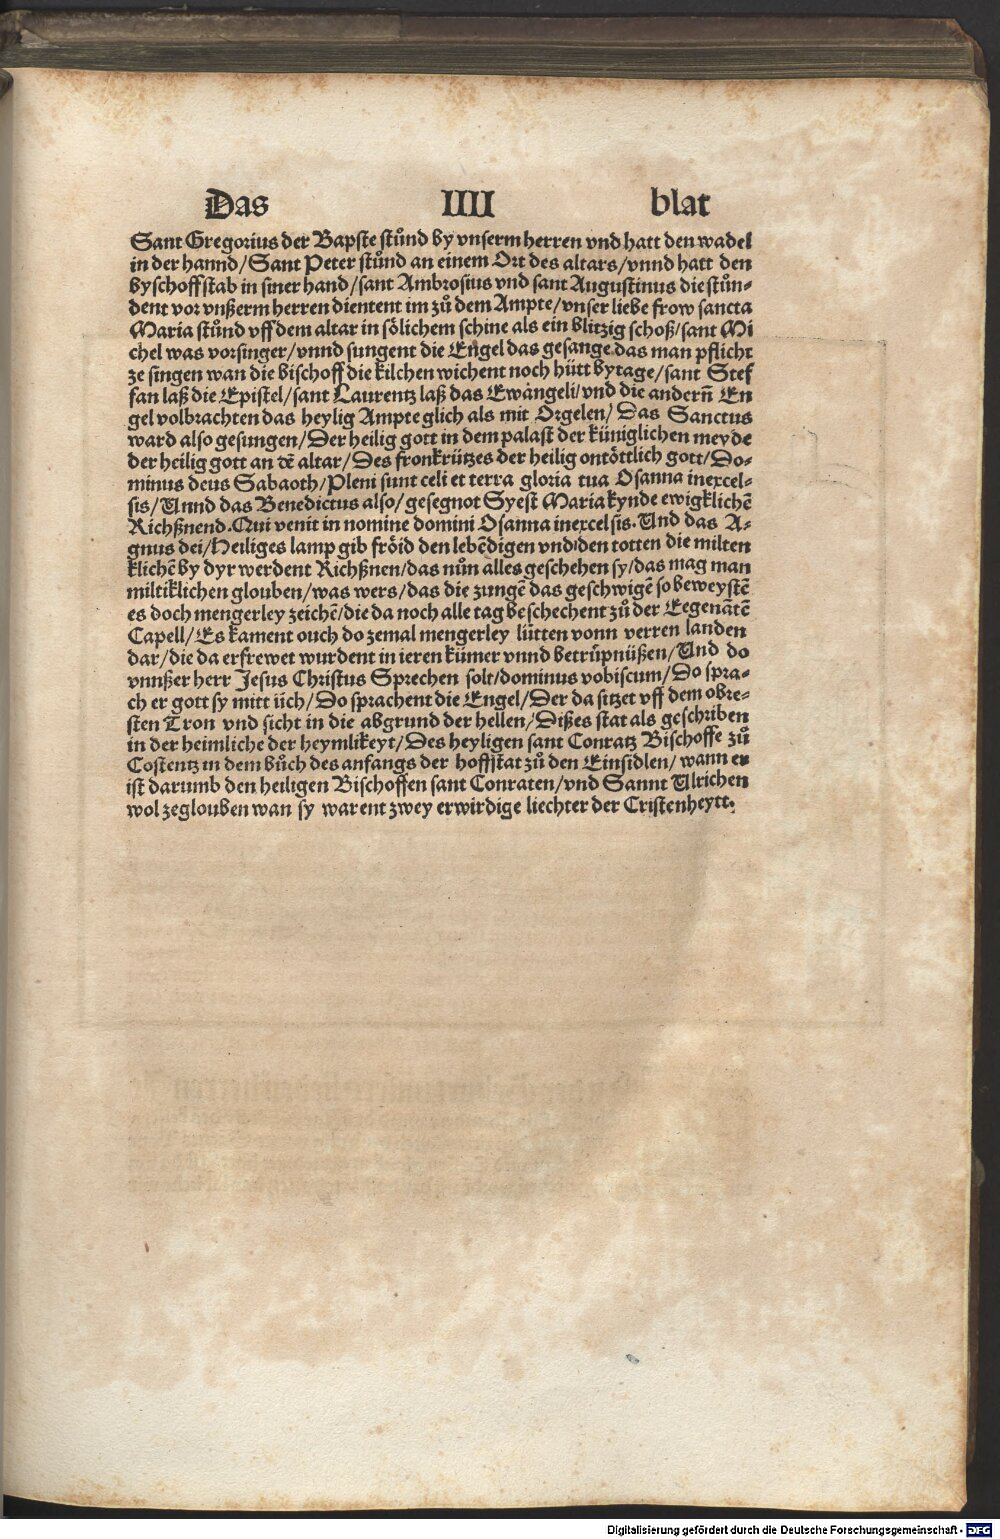 Das IIII blat
Sant Gregorius der Bapste stůnd by vnserm herren vnd hatt den wadel
in der hannd/Sant Peter stůnd an einem Ort des altars/vnnd hatt den
byschoffstab in siner hand/sant Ambrosius vnd sant Augustinus die stůn⸗
dent vor vnßerm herren dientent im zů dem Ampte/vnser liebe frow sancta
Maria stůnd vff dem altar in sölichem schine als ein blitzig schoß/sant Mi
chel was vorsinger/vnnd sungent die Engel das gesange das man pflicht
ze singen wan die bischoff die kilchen wichent noch hütt bytage/sant Stef
fan laß die Epistel/sant Laurentz laß das Ewangeli/vnd die andern̄ En
gel volbrachten das heylig Ampte glich als mit Orgelen/ Das Sanctus
ward also gesungen/Der heilig gott in dem palast der küniglichen meyde
der heilig gott an dē altar/Des fronkrützes der heilig ontöttlich gott/Do⸗
minus deus Sabaoth/Pleni sunt celi et terra gloria tua Osanna inexcel⸗
sis/Vnnd das Benedictus also/gesegnot Syest Maria kynde ewigklichē
Richßnend.Qui venit in nomine domini Osanna inexcelsis.Vnd das A⸗
gnus dei/Heiliges lamp gib fröid den lebēdigen vnd den totten die milten
klichē by dyr werdent Richßnen/das nůn alles geschehen sy/das mag man
miltiklichen glouben/was wers/das die zungē das geschwigē so beweystē
es doch mengerley zeichē/die da noch alle tag beschechent zů der Eegenātē
Capell/Es kament ouch do zemal mengerley lütten vonn verren landen
dar/die da erfrewet wurdent in ieren kümer vnnd betrüpnüßen/Vnd do
vnnßer herr Jesus Christus Sprechen solt/dominus vobiscum/Do spra⸗
ch er gott sy mitt üch/Do sprachent die Engel/Der da sitzet vff dem obre⸗
sten Tron vnd sicht in die abgrund der hellen/Dißes stat als geschriben
in der heimliche der heymlikeyt/Des heyligen sant Conratz Bischoffe zů
Costentz in dem bůch des anfangs der hoffstat zů den Einsidlen/wann er
ist darumb den heiligen Bischoffen sant Conraten/vnd Sannt Vlrichen
wol zeglouben wan sy warent zwey erwirdige liechter der Cristenheytt.
Digitalisierung gefördert durch die Deutsche Forschungsgemeinschaft - DFG